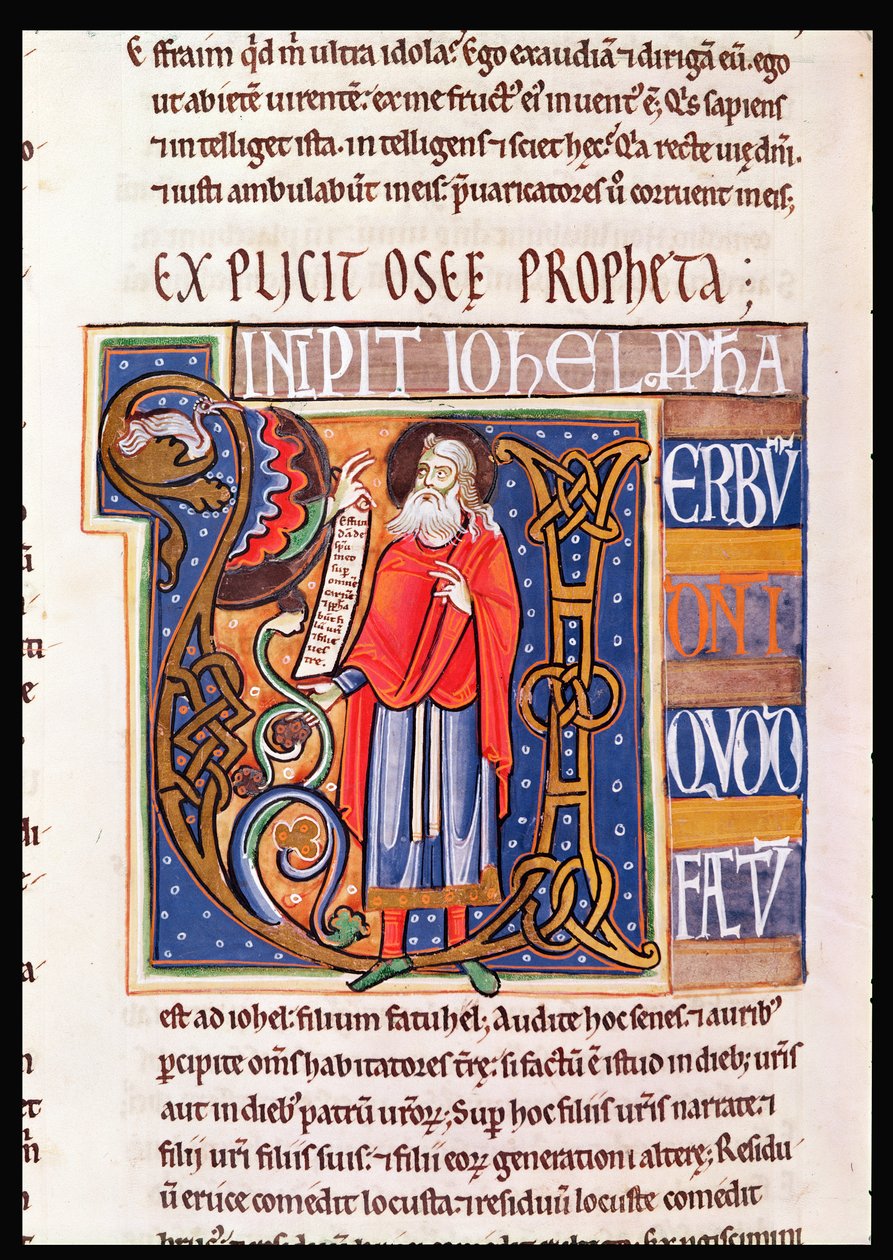 Effraim qd̄ m̄ ultra idola? Ego exaudiā ⁊ dirigā eū. ego
ut abietē uirentē: ex me fruct᾽ ei᾽ inuent᾽ ē; Qis sapiens
⁊ intelliget ista. intelligens ⁊ sciet hęc? Qia recte uię dn̄i.
⁊ iusti ambulabūt in eis: p̄uaricatores ū corruent in eis;
EXPLICIT OSEE PROPHETA;
INCIPIT IOHEL PPHA
VERBŪ
DN̄I
QVOD
FACTŪ
Effun
dā de
spū
meo
sup
omnē
carnē
⁊ ppha
būt fi
lii urī
⁊ filie
ues
tre.
est ad iohel: filium fatuhel; Audite hoc senes. ⁊ aurib᾽
ꝑcipite om̄s habitatores t̄rę: si factū ē istud in dieb; urīs
aut in dieb᾽ patrū urōꝝ; Sup hoc filiis urīs narrate. ⁊
filij urī filiis suis. ⁊ filii eoꝝ generationi alterę; Residu
ū eruce comedit locusta. ⁊ residuū locuste comedit